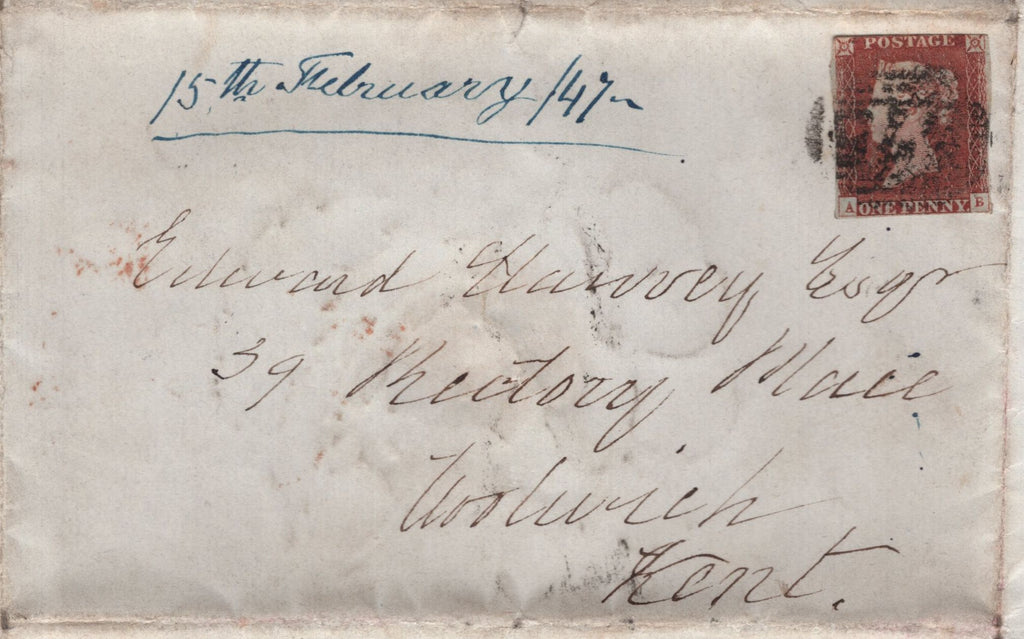 15th February /47
POSTAGE
A ONE PENNY B
Edward Harvey Esqr
39 Rectory Place
Woolwich
Kent.